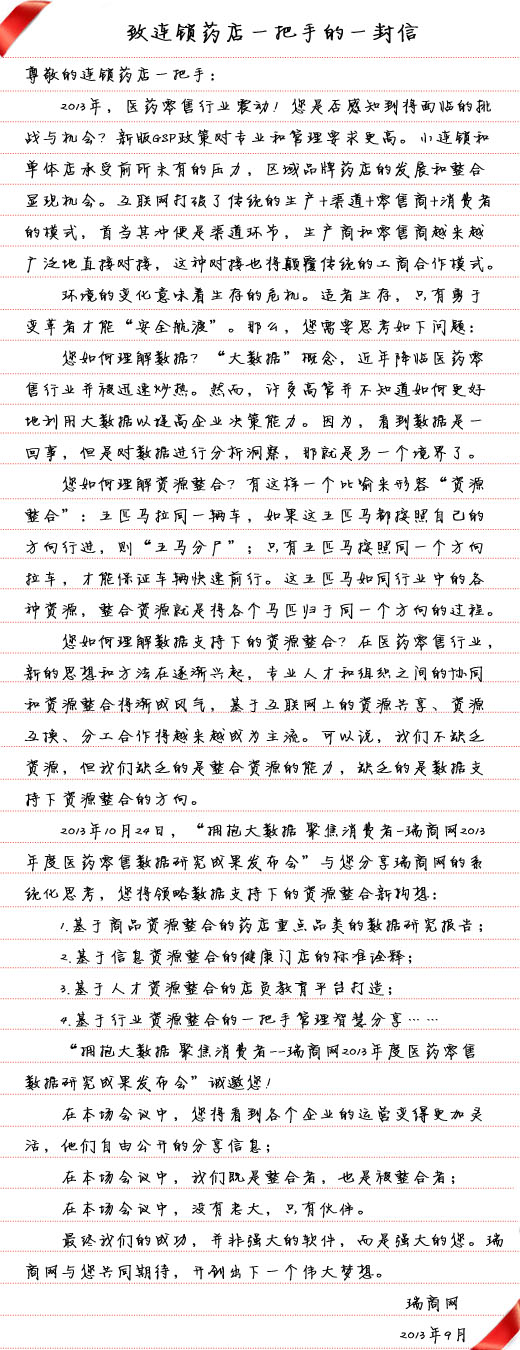 致连锁药店一把手的一封信
尊敬的连锁药店一把手：
2013年，医药零售行业震动！您是否感知到将面临的挑
战与机会？新版GSP政策对专业和管理要求更高。小连锁和
单体店承受前所未有的压力，区域品牌药店的发展和整合
显现机会。互联网打破了传统的生产+渠道+零售商+消费者
的模式，首当其冲便是渠道环节，生产商和零售商越来越
广泛地直接对接，这种对接也将颠覆传统的工商合作模式。
环境的变化意味着生存的危机。适者生存，只有勇于
变革者才能“安全航渡”。那么，您需要思考如下问题：
您如何理解数据？“大数据”概念，近年降临医药零
售行业并被迅速炒热。然而，许多高管并不知道如何更好
地利用大数据以提高企业决策能力。因为，看到数据是一
回事，但是对数据进行分析洞察，那就是另一个境界了。
您如何理解资源整合？有这样一个比喻来形容“资源
整合”：五匹马拉同一辆车，如果这五匹马都按照自己的
方向行进，则“五马分尸”；只有五匹马按照同一个方向
拉车，才能保证车辆快速前行。这五匹马如同行业中的各
种资源，整合资源就是将各个马匹归于同一个方向的过程。
您如何理解数据支持下的资源整合？在医药零售行业，
新的思想和方法在逐渐兴起，专业人才和组织之间的协同
和资源整合将渐成风气，基于互联网上的资源共享、资源
互换、分工合作将越来越成为主流。可以说，我们不缺乏
资源，但我们缺乏的是整合资源的能力，缺乏的是数据支
持下资源整合的方向。
2013年10月24日，“拥抱大数据 聚焦消费者-瑞商网2013
年度医药零售数据研究成果发布会”与您分享瑞商网的系
统化思考，您将领略数据支持下的资源整合新构想：
1.基于商品资源整合的药店重点品类的数据研究报告；
2.基于信息资源整合的健康门店的标准诠释；
3.基于人才资源整合的店员教育平台打造；
4.基于行业资源整合的一把手管理智慧分享……
“拥抱大数据 聚焦消费者--瑞商网2013年度医药零售
数据研究成果发布会”诚邀您！
在本场会议中，您将看到各个企业的运营变得更加灵
活，他们自由公开的分享信息；
在本场会议中，我们既是整合者，也是被整合者；
在本场会议中，没有老大，只有伙伴。
最终我们的成功，并非强大的软件，而是强大的您。瑞
商网与您共同期待，开创出下一个伟大梦想。
瑞商网
2013年9月